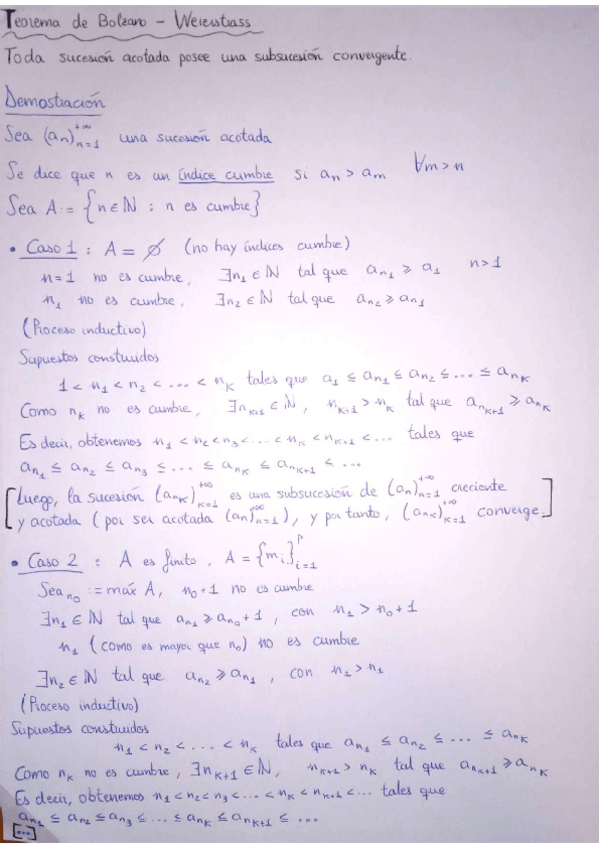 Teorema de Bolzano - Weierstrass
Toda sucesión acotada posee una subsucesión convergente.
Demostración
Sea (aₙ)ₙ₌₁⁺∞ una sucesión acotada
Se dice que n es un índice cumbre si aₙ > aₘ ∀m > n
Sea A := {n ∈ ℕ : n es cumbre}
• Caso 1 : A = ∅ (no hay índices cumbre)
n = 1 no es cumbre, ∃n₁ ∈ ℕ tal que a_{n₁} ⩾ a₁ n > 1
n₁ no es cumbre, ∃n₂ ∈ ℕ tal que a_{n₂} ⩾ a_{n₁}
(Proceso inductivo)
Supuestos construidos
1 < n₁ < n₂ < ... < n_k tales que a₁ ≤ a_{n₁} ≤ a_{n₂} ≤ ... ≤ a_{n_k}
Como n_k no es cumbre, ∃n_{k+1} ∈ ℕ, n_{k+1} > n_k tal que a_{n_{k+1}} ⩾ a_{n_k}
Es decir, obtenemos n₁ < n₂ < n₃ < ... < n_k < n_{k+1} < ... tales que
a_{n₁} ≤ a_{n₂} ≤ a_{n₃} ≤ ... ≤ a_{n_k} ≤ a_{n_{k+1}} ≤ ...
[Luego, la sucesión (a_{n_k})_{k=1}^{+∞} es una subsucesión de (aₙ)ₙ₌₁⁺∞ creciente
y acotada (por ser acotada (aₙ)ₙ₌₁⁺∞), y por tanto, (a_{n_k})_{k=1}^{+∞} converge.]
• Caso 2 : A es finito, A = {m_i}_{i=1}^{p}
Sea n₀ := máx A, n₀+1 no es cumbre
∃n₁ ∈ ℕ tal que a_{n₁} ⩾ a_{n₀}+1, con n₁ > n₀+1
n₁ (como es mayor que n₀) no es cumbre
∃n₂ ∈ ℕ tal que a_{n₂} ⩾ a_{n₁}, con n₂ > n₁
(Proceso inductivo)
Supuestos construidos
n₁ < n₂ < ... < n_k tales que a_{n₁} ≤ a_{n₂} ≤ ... ≤ a_{n_k}
Como n_k no es cumbre, ∃n_{k+1} ∈ ℕ, n_{k+1} > n_k tal que a_{n_{k+1}} ⩾ a_{n_k}
Es decir, obtenemos n₁ < n₂ < n₃ < ... < n_k < n_{k+1} < ... tales que
a_{n₁} ≤ a_{n₂} ≤ a_{n₃} ≤ ... ≤ a_{n_k} ≤ a_{n_{k+1}} ≤ ...
[...]